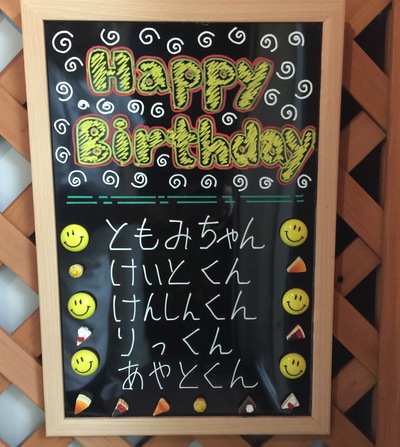 Happy
Birthday
ともみちゃん
けいとくん
けんしんくん
りっくん
あやとくん